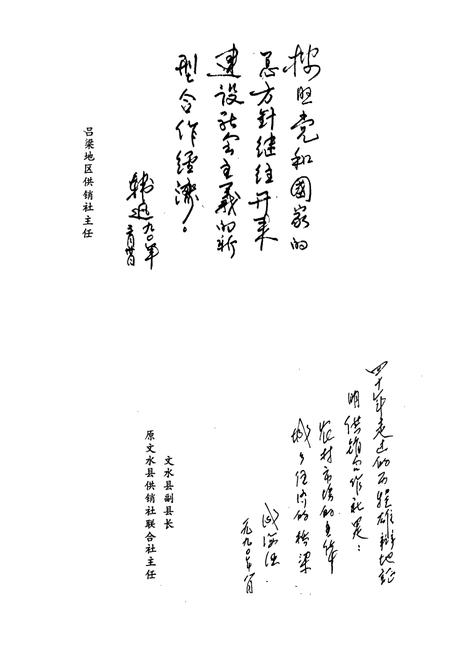 按照党和国家的
总方针继往开来
建设社会主义的新
型合作经济。
九〇年
吕梁地区供销社主任
四十年走过的历程雄辩地证
明供销合作社是：
农村市场的主体
城乡经济的桥梁
一九九〇年
文水县副县长
原文水县供销社联合社主任